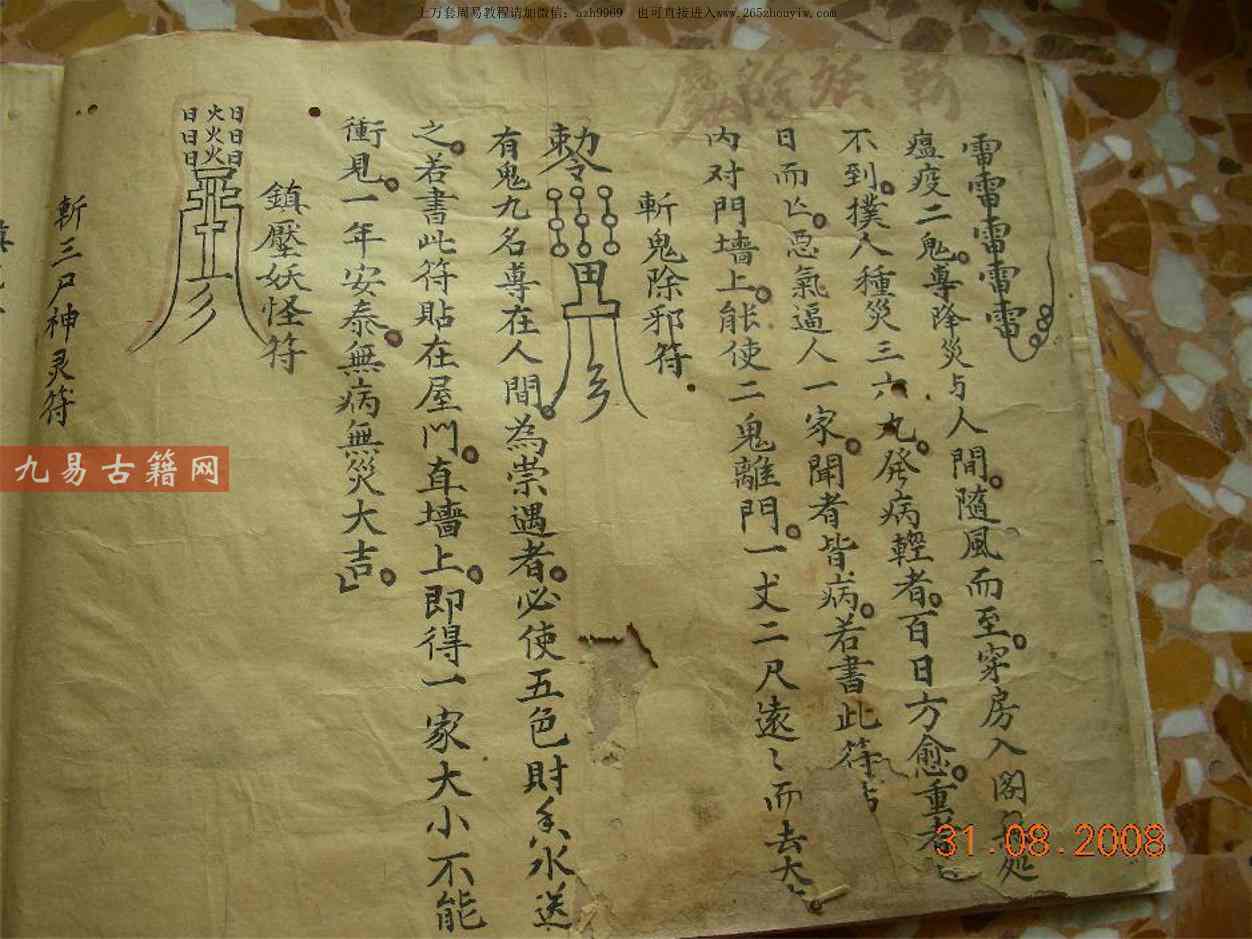 上万套周易教程请加微信：azh9969 也可直接进入www.265zhouyiw.com
斬妖除魔
雷雷雷雷雷
瘟疫二鬼。尊降災与人間。隨風而至。穿房入閣
不到。撲人種災三六九。發病輕者。百日方愈。重者
日而亡。惡氣逼人一家。聞者皆病。若書此符
内对門墻上。能使二鬼離門。一丈二尺遠〻而去大
斬鬼除邪符
勅令
有鬼九名尊在人間。為祟遇者。必使五色財 水送
之。若書此符貼在屋門。直墻上。即得一家大小不能
衝見。一年安泰。無病無災大吉。
鎮壓妖怪符
日火日
日火日
日火日
斬三尸神灵符
九易古籍网
31.08.2008